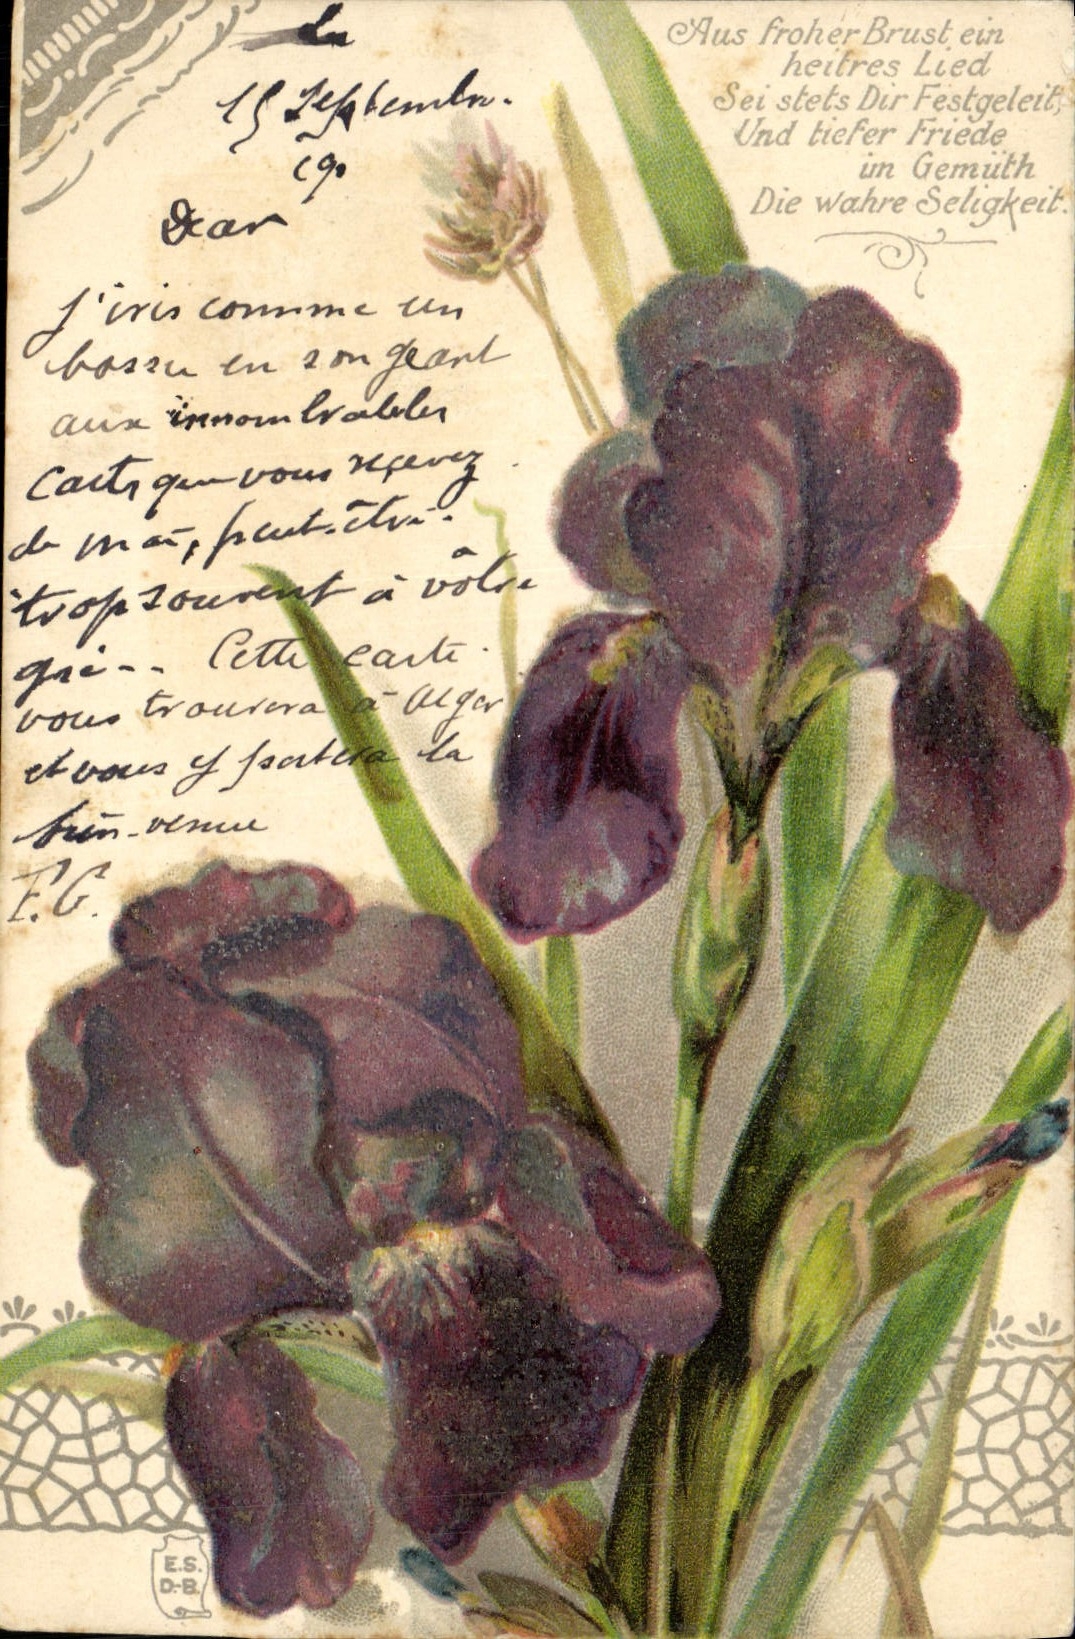 Le
15 Septembre.
190
Dear
J'iris comme un
bossu en songeant
aux innombrables
Cartes que vous reçevez
de moi, peut-être
trop souvent à vôtre
gré -- Cette carte
vous trouvera à Alger
et vous y portera la
bien-venue
F.G.
Aus froher Brust ein
heitres Lied
Sei stets Dir Festgeleit,
Und tiefer Friede
im Gemüth
Die wahre Seligkeit.
E.S.
D.-B.